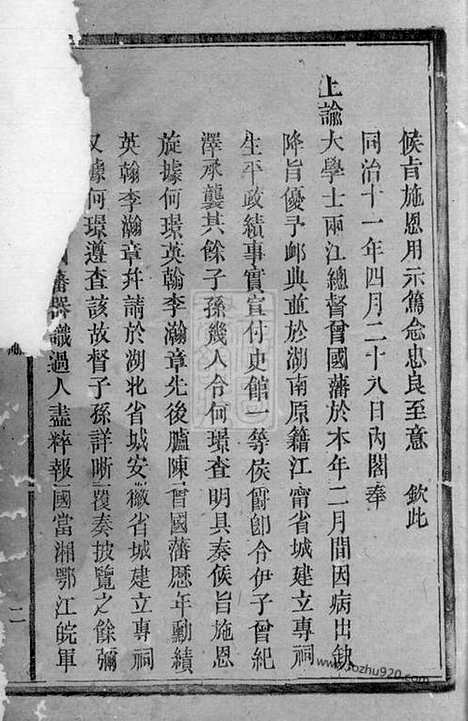 候旨施恩用示篤念忠良至意　欽此
同治十一年四月二十八日內閣奉
上諭大學士兩江總督曾國藩於本年二月間因病出缺
降旨優予卹典並於湖南原籍江甯省城建立專祠
生平政績事實宣付史館一等侯爵卽令伊子曾紀
澤承襲其餘子孫幾人令何璟查明具奏候旨施恩
旋據何璟英翰李瀚章先後臚陳曾國藩歷年勳績
英翰李瀚章幷請於湖北省城安徽省城建立專祠
又據何璟遵查該故督子孫詳晰覆奏披覽之餘彌
國藩器識過人盡粹報國當湘鄂江皖軍
二
www.sozhu920.com